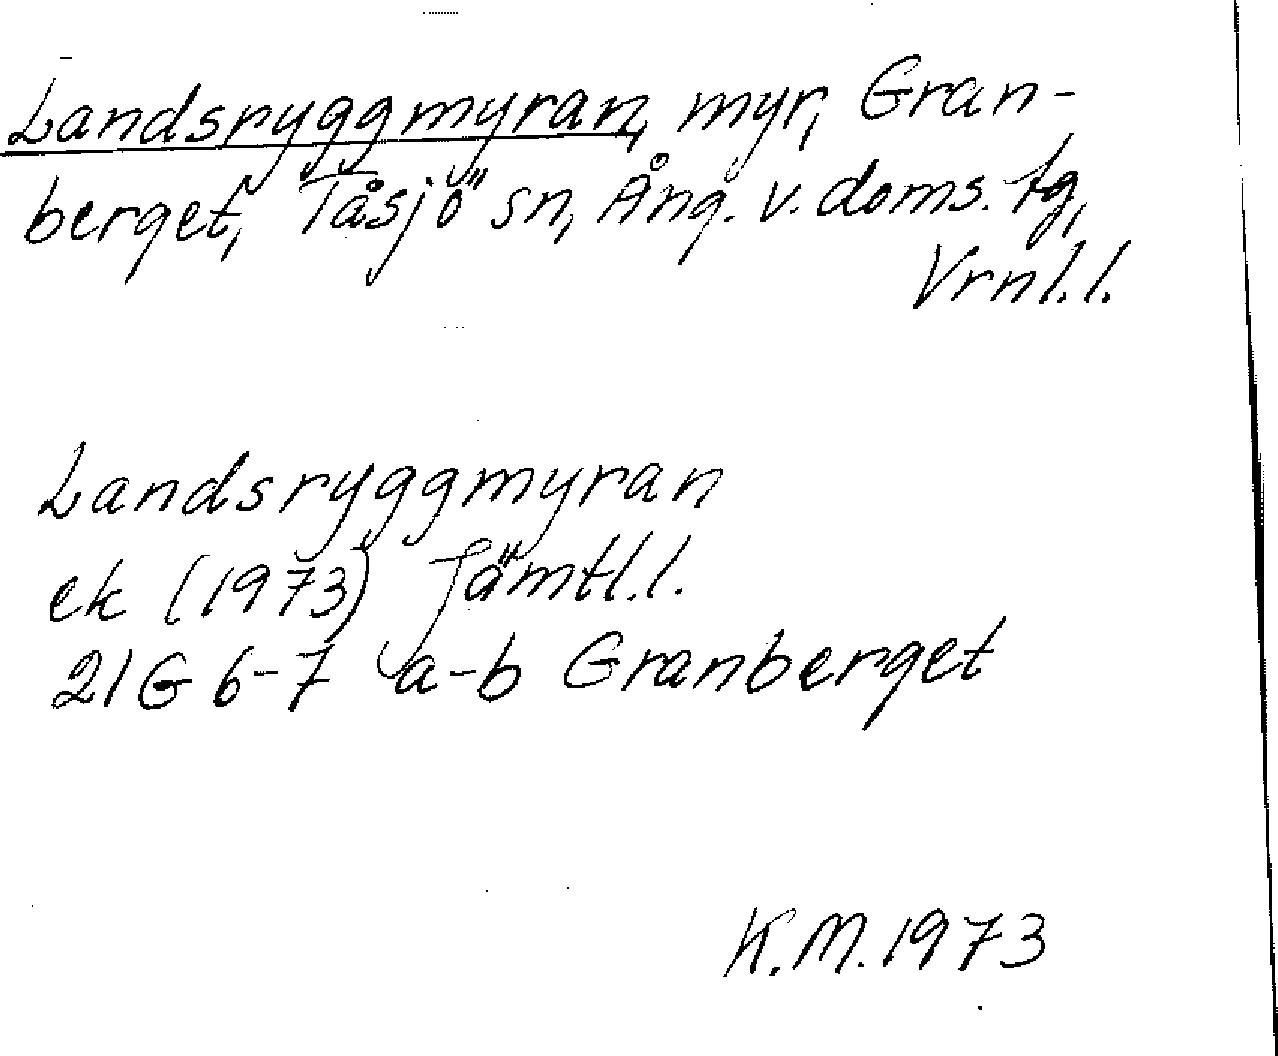 Landsryggmyran, myr, Gran-
berget, Tåsjö sn, Ång. v. doms. tg,
Vrnl.l.
Landsryggmyran
ek (1973) Jämtl.l.
21G 6-7 a-b Granberget
K.M. 1973